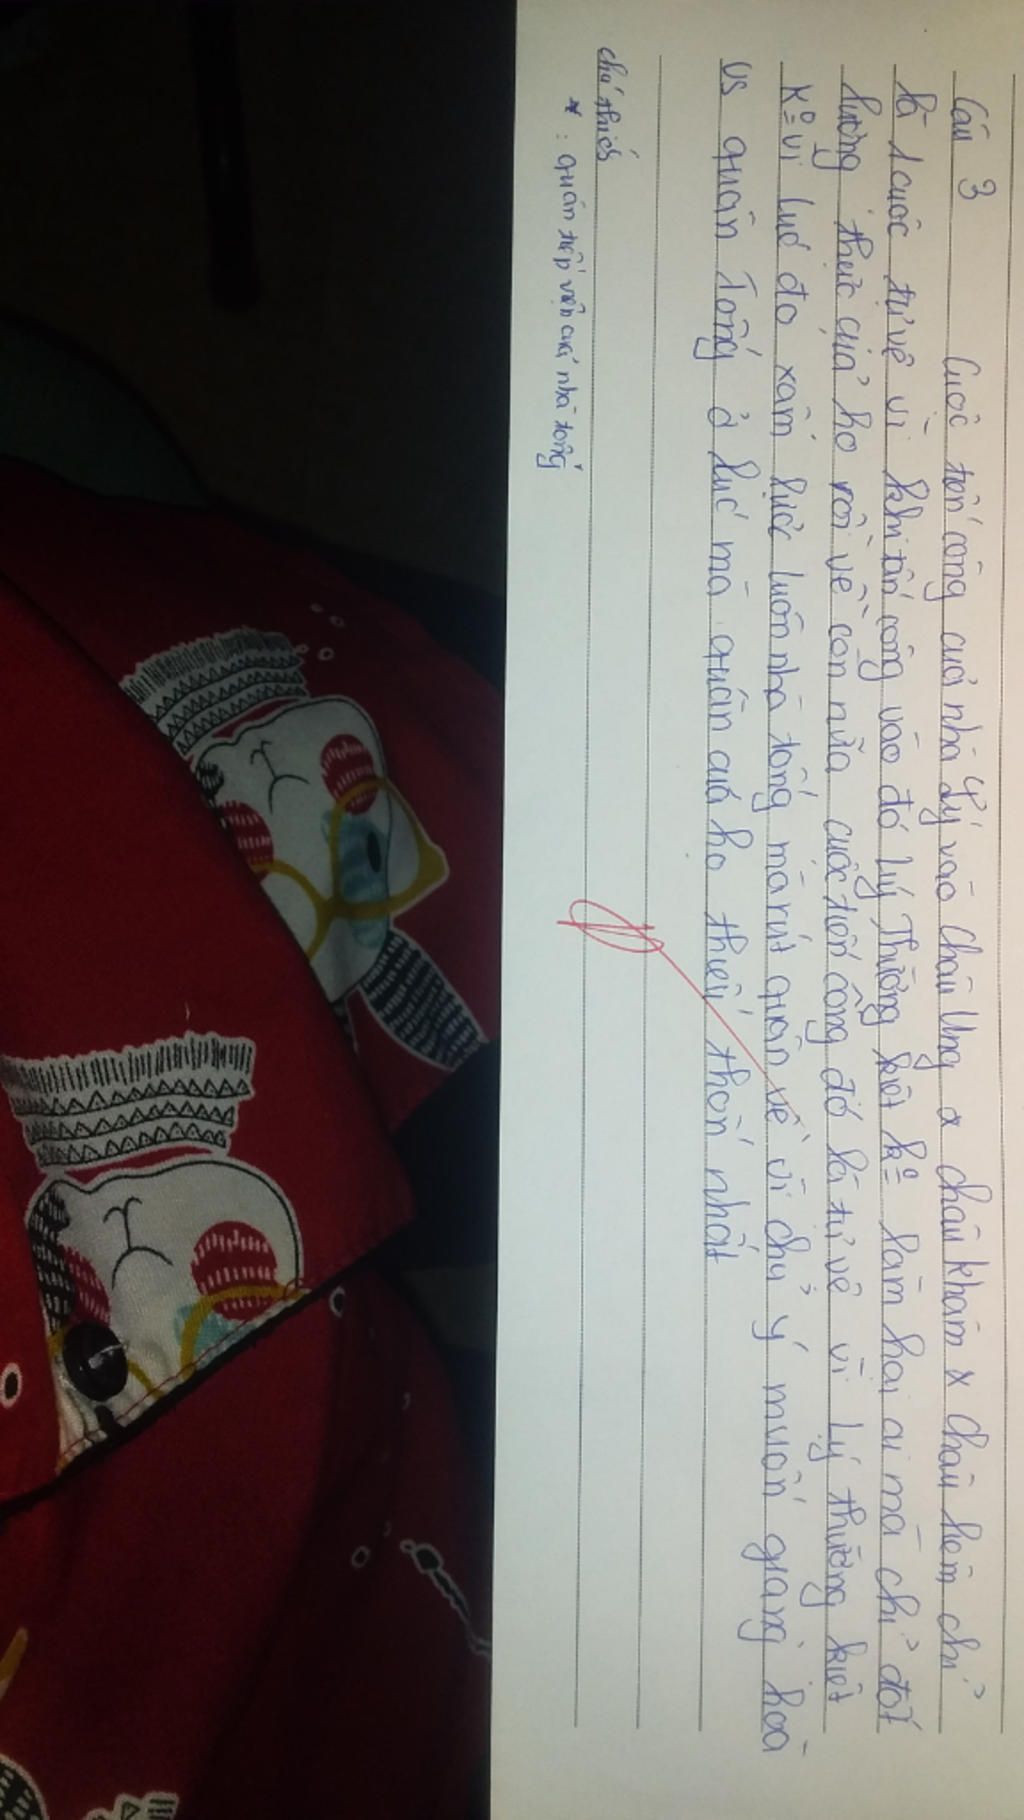 Câu 3 Cuộc tấn công của nhà Lý vào châu Ung x châu Khâm x châu liêm chỉ
là 1 cuộc tự vệ vì khi tấn công vào đó Lý Thường kiệt kº làm hại ai mà chỉ đốt
lương thực của họ rồi về còn nữa cuộc tiến công đó là tự vệ vì lý thường kiệt
Kº vì lúc đó xâm lược luôn nhà tống mà rút quân về vì chủ ý muốn giảng hoà
vs quân Tống ở lúc mà quân của họ thiếu thốn nhất
chú thích
* : quân tiếp viện của nhà tống